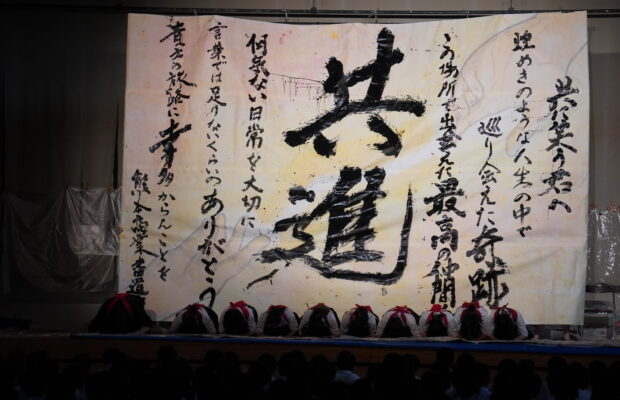 共に笑う君へ
煌めきのような人生の中で
巡り会えた奇跡
この場所で出会えた最高の仲間
共進
何気ない日常を大切に
言葉では足りないくらいのありがとう
貴方の旅路に幸多からんことを
熊本商業書道